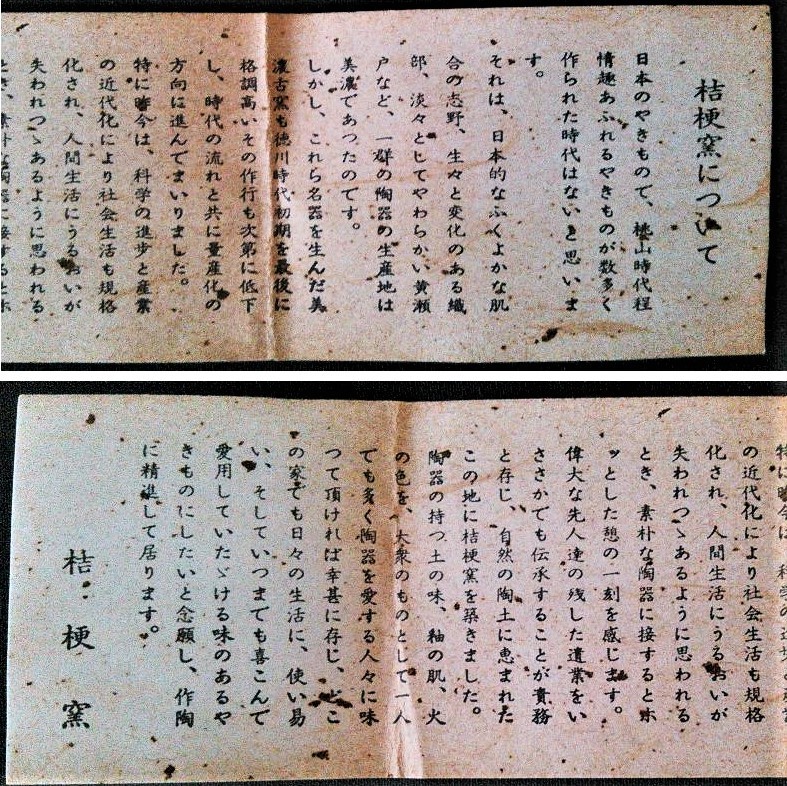 桔梗窯について
日本のやきもので、桃山時代程
情趣あふれるやきものが数多く
作られた時代はないと思いま
す。
それは、日本的なふくよかな肌
合の志野、生々と変化のある織
部、淡々としてやわらかい黄瀬
戸など、一群の陶器の生産地は
美濃であつたのです。
しかし、これら名器を生んだ美
濃古窯も徳川時代初期を最後に
格調高いその作行も次第に低下
し、時代の流れと共に量産化の
方向に進んでまいりました。
特に昨今は、科学の進歩と産業
の近代化により社会生活も規格
化され、人間生活にうるおいが
失われつゝあるように思われる
とき、素朴な陶器に接するとホ
特に昨今は、科学の進歩と産業
の近代化により社会生活も規格
化され、人間生活にうるおいが
失われつゝあるように思われる
とき、素朴な陶器に接するとホ
ッとした憩の一刻を感じます。
偉大な先人達の残した遺業をい
ささかでも伝承することが責務
と存じ、自然の陶土に恵まれた
この地に桔梗窯を築きました。
陶器の持つ土の味、釉の肌、火
の色を、大衆のものとして一人
でも多く陶器を愛する人々に味
つて頂ければ幸甚に存じ、どこ
の家でも日々の生活に、使い易
い、そしていつまでも喜こんで
愛用していたゞける味のあるや
きものにしたいと念願し、作陶
に精進して居ります。
桔梗窯